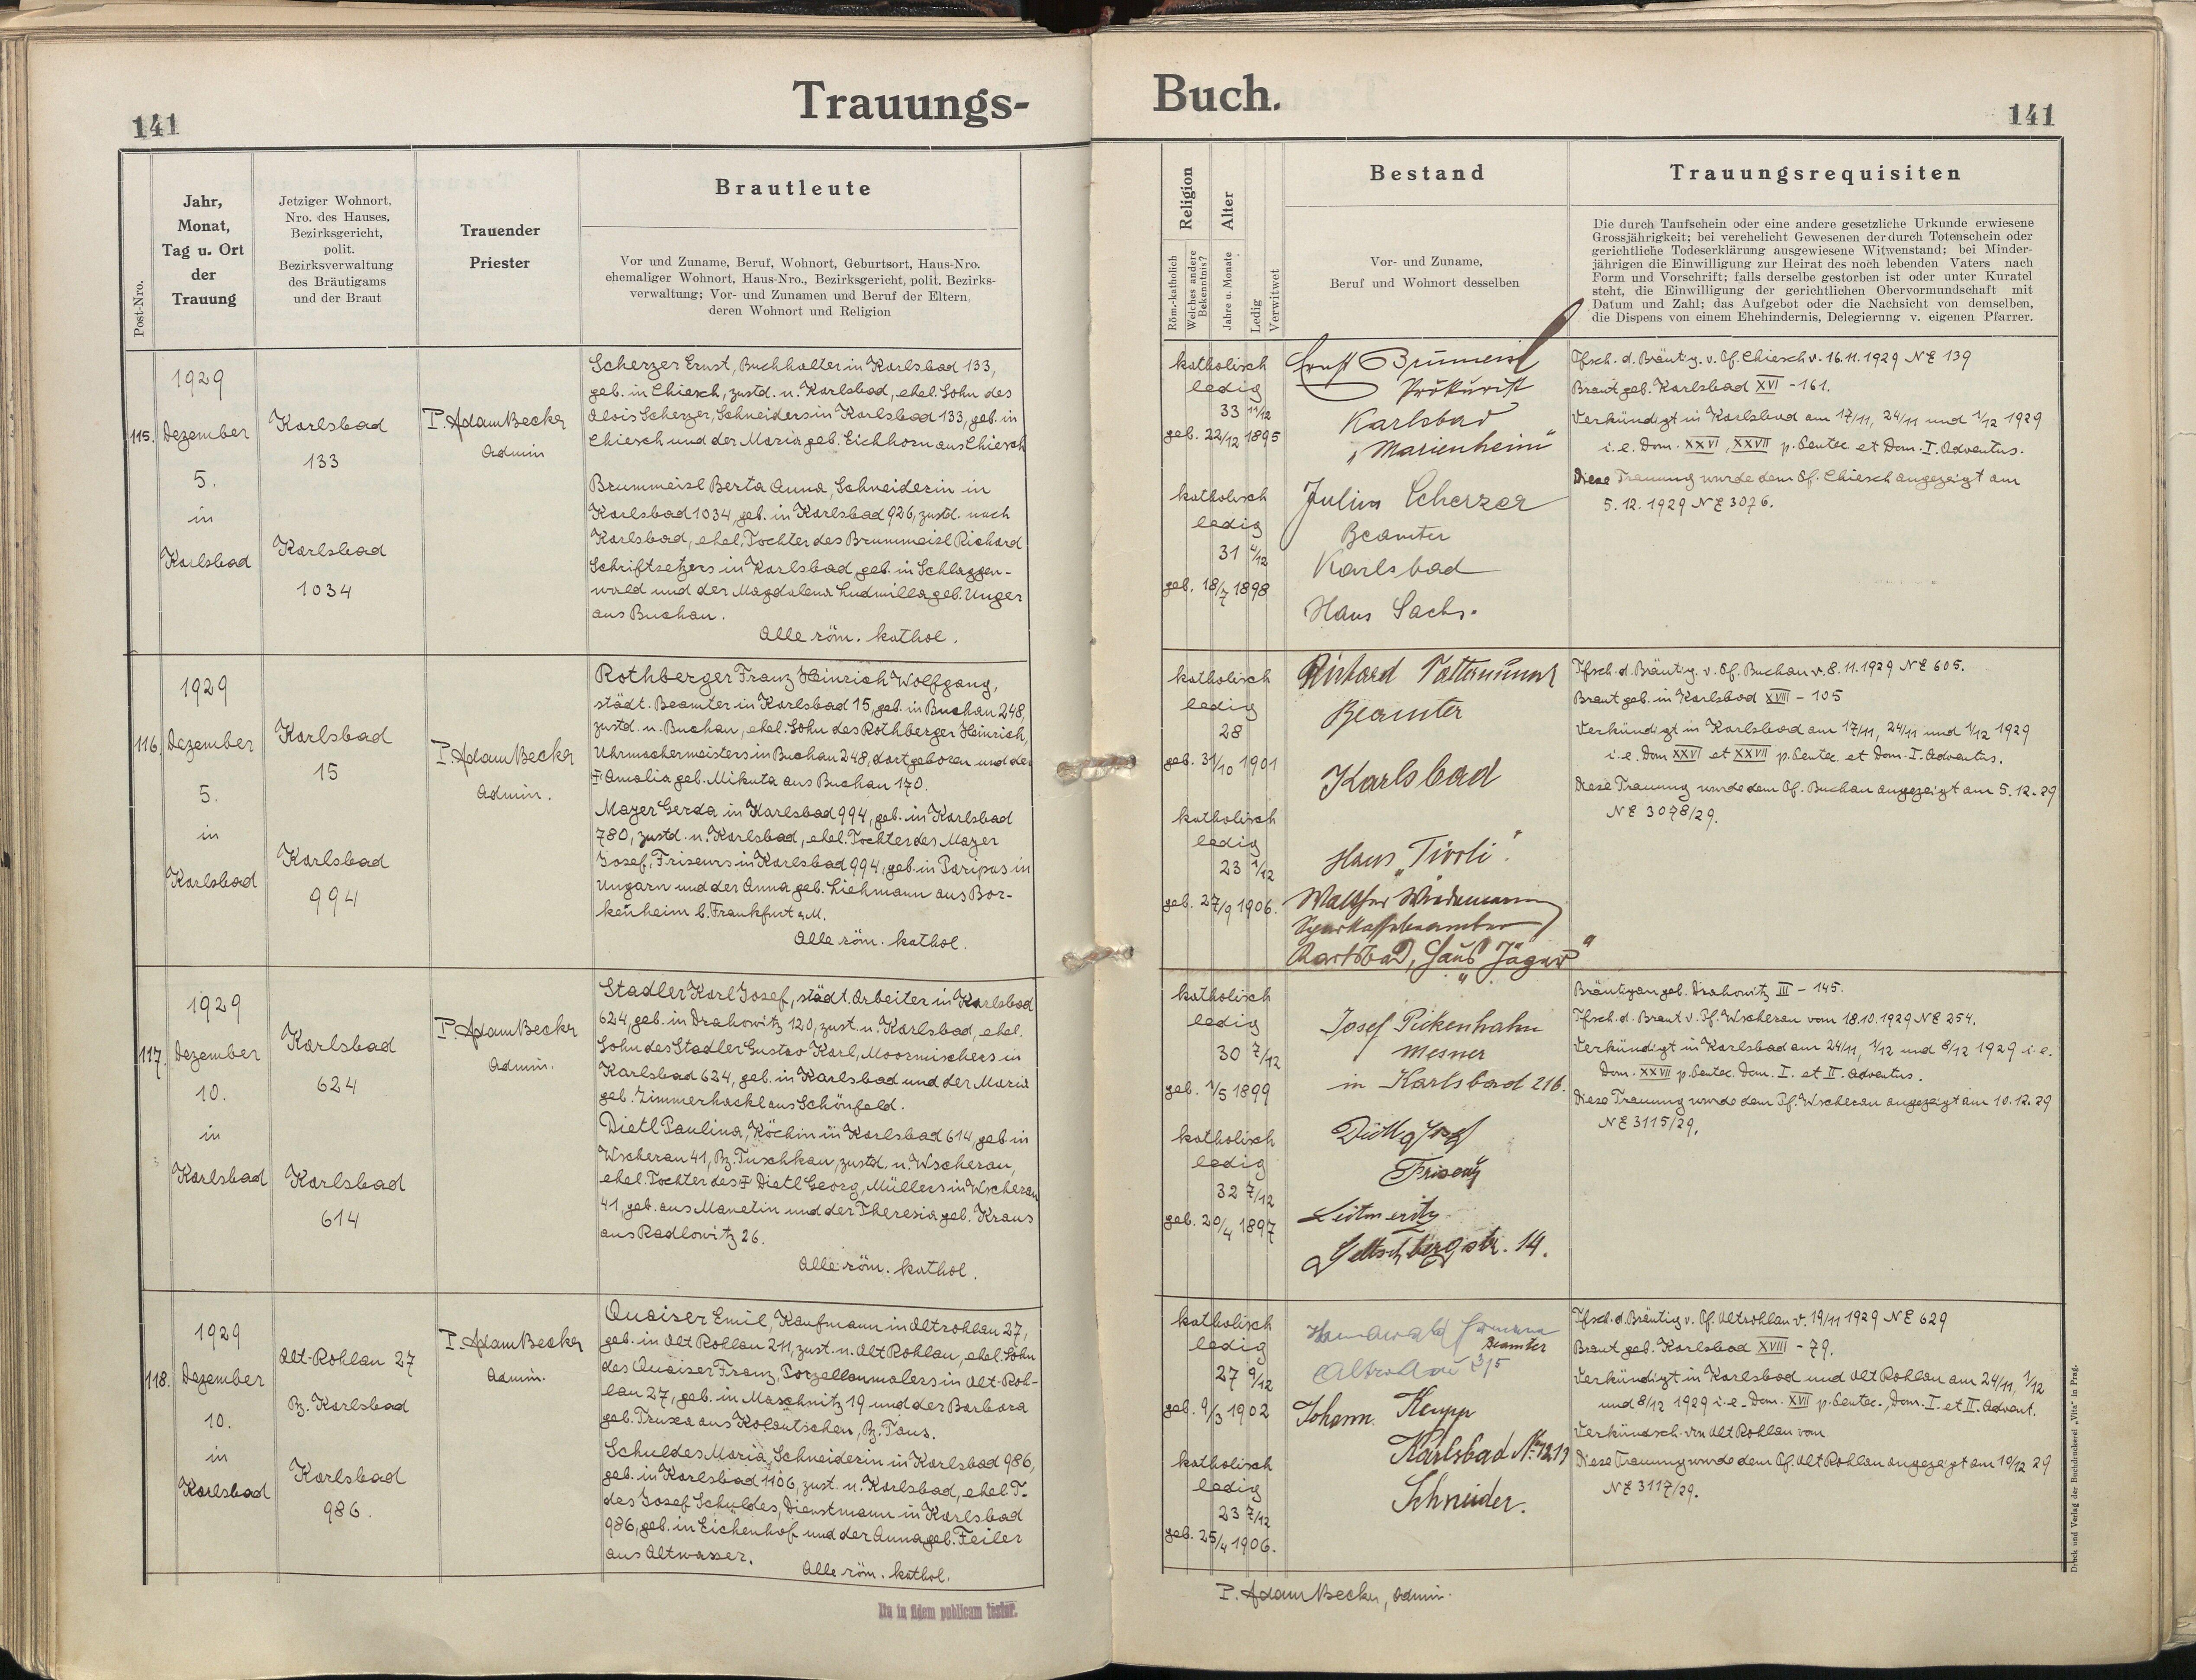 Trauungs-
141
Post-Nro.
Jahr,
Monat,
Tag u. Ort
der
Trauung
Jetziger Wohnort,
Nro. des Hauses,
Bezirksgericht,
polit.
Bezirksverwaltung
des Bräutigams
und der Braut
Trauender
Priester
Brautleute
Vor und Zuname, Beruf, Wohnort, Geburtsort, Haus-Nro.
ehemaliger Wohnort, Haus-Nro., Bezirksgericht, polit. Bezirks-
verwaltung; Vor- und Zunamen und Beruf der Eltern,
deren Wohnort und Religion
115.
1929
Dezember
5.
in
Karlsbad
Karlsbad
133
Karlsbad
1034
P. Adam Becker
Admin
Scherzer Ernst, Buchhalter in Karlsbad 133,
geb. in Chiesch, zustd. n. Karlsbad, ehel. Sohn des
Alois Scherzer, Schneiders in Karlsbad 133, geb. in
Chiesch und der Maria geb. Eichhorn aus Chiesch
Brummeisl Berta Anna, Schneiderin in
Karlsbad 1034, geb. in Karlsbad 926, zustd. nach
Karlsbad, ehel. Tochter des Brummeisl Richard
Schriftsetzers in Karlsbad, geb. in Schlaggen-
wald und der Magdalena Ludmilla geb. Unger
aus Buchau.
Alle röm. kathol.
116.
1929
Dezember
5.
in
Karlsbad
Karlsbad
15
Karlsbad
994
P. Adam Becker
Admin.
Rothberger Franz Heinrich Wolfgang,
städt. Beamter in Karlsbad 15, geb. in Buchau 248,
zustd. n. Buchau, ehel. Sohn des Rothberger Heinrich,
Uhrmachermeisters in Buchau 248, dort geboren und der
Amalia geb. Mikuta aus Buchau 170.
Mayer Gerda in Karlsbad 994, geb. in Karlsbad
780, zustd. n. Karlsbad, ehel. Tochter des Mayer
Josef, Friseurs in Karlsbad 994, geb. in Paripas in
Ungarn und der Anna geb. Liehmann aus Bor-
kenheim b. Frankfurt a. M.
Alle röm. kathol.
117.
1929
Dezember
10.
in
Karlsbad
Karlsbad
624
Karlsbad
614
P. Adam Becker
Admin.
Stadler Karl Josef, städt. Arbeiter in Karlsbad
624, geb. in Drahowitz 120, zust. n. Karlsbad, ehel.
Sohn des Stadler Gustav Karl, Moormischers in
Karlsbad 624, geb. in Karlsbad und der Maria
geb. Zimmerhackl aus Schönfeld.
Dietl Paulina, Köchin in Karlsbad 614, geb in
Wscherau 41, Bz. Tuschkau, zustd. n. Wscherau,
ehel. Tochter des Dietl Georg, Müllers in Wscherau
41, geb. aus Manetin und der Theresia geb. Kraus
aus Radlowitz 26.
Alle röm. kathol.
118.
1929
Dezember
10.
in
Karlsbad
Alt-Rohlau 27
Bz. Karlsbad
Karlsbad
986.
P. Adam Becker
Admin.
Quaiser Emil, Kaufmann in Altrohlau 27,
geb. in Alt Rohlau 211, zust. n. Alt Rohlau, ehel. Sohn
des Quaiser Franz, Porzellanmalers in Alt-Roh-
lau 27, geb. in Maschnitz 19 und der Barbara
geb. Truxa aus Kolautschen, Bz. Taus.
Schuldes Maria, Schneiderin in Karlsbad 986,
geb. in Karlsbad 1106, zust. n. Karlsbad, ehel. T.
des Josef Schuldes, Dienstmann in Karlsbad
986, geb. in Eichenhof und der Anna geb. Feiler
aus Altwasser.
Alle röm. kathol.
Ita in fidem publicam testor.
Buch.
141
Religion
Röm.-katholisch
Welches andere
Bekenntnis?
Alter
Jahre u. Monate
Ledig
Verwitwet
Bestand
Vor- und Zuname,
Beruf und Wohnort desselben
Trauungsrequisiten
Die durch Taufschein oder eine andere gesetzliche Urkunde erwiesene
Grossjährigkeit; bei verehelicht Gewesenen der durch Totenschein oder
gerichtliche Todeserklärung ausgewiesene Witwenstand; bei Minder-
jährigen die Einwilligung zur Heirat des noch lebenden Vaters nach
Form und Vorschrift; falls derselbe gestorben ist oder unter Kuratel
steht, die Einwilligung der gerichtlichen Obervormundschaft mit
Datum und Zahl; das Aufgebot oder die Nachsicht von demselben,
die Dispens von einem Ehehindernis, Delegierung v. eigenen Pfarrer.
katholisch
ledig
33 11/12
geb. 22/12 1895
katholisch
ledig
31 4/12
geb. 18/7 1898
Ernst Brümeisl
Prokurist
Karlsbad
„Marienheim"
Julius Scherzer
Beamter
Karlsbad
Haus Sachs.
Tfsch. d. Bräutg. v. Pf. Chiesch v. 16.11.1929 NE 139
Braut geb. Karlsbad XVI - 161.
Verkündigt in Karlsbad am 17/11, 24/11 und 1/12 1929
i. e. Dom. XXVI, XXVII p. Pentec. et Dom. I. Adventus.
Diese Trauung wurde dem Pf. Chiesch angezeigt am
5. 12. 1929 NE 3076.
katholisch
ledig
28
geb. 31/10 1901
katholisch
ledig
23 1/12
geb. 27/9 1906.
Richard
Beamter
Karlsbad
Haus „Tivoli".
Walther Wiedemann
Sparkassebeamter
Karlsbad, Haus „Jäger"
Tfsch. d. Bräutig. v. Pf. Buchau v. 8.11.1929 NE 605.
Braut geb. in Karlsbad XVIII - 105
Verkündigt in Karlsbad am 17/11, 24/11 und 1/12 1929
i. e. Dom XXVI et XXVII p. Pentec. et Dom. I. Adventus.
Diese Trauung wurde dem Pf. Buchau angezeigt am 5. 12. 29
NE 3078/29.
katholisch
ledig
30 7/12
geb. 1/5 1899
katholisch
ledig
32 7/12
geb. 20/4 1897
Josef Pickenhahn
Mesner
in Karlsbad 216.
Dietl Josef
Friseur
Leitmeritz
Geltschbergstr. 14.
Bräutigam geb. Drahowitz III - 145.
Tfsch. d. Braut v. Pf. Wscherau vom 18.10.1929 NE 254.
Verkündigt in Karlsbad am 24/11, 1/12 und 8/12 1929 i. e.
Dom. XXVII p. Pentec. Dom. I. et II. Adventus.
Diese Trauung wurde dem Pf. Wscherau angezeigt am 10. 12. 29
NE 3115/29.
katholisch
ledig
27 9/12
geb. 9/3 1902
katholisch
ledig
23 7/12
geb. 25/4 1906.
Hermann
Beamter
Altrohlau 315
Johann
Karlsbad No 1213
Schneider.
Tfsch. d. Bräutig v. Pf. Altrohlau v. 19/11 1929 NE 629
Braut geb. Karlsbad XVIII - 79.
Verkündigt in Karlsbad und Alt Rohlau am 24/11, 1/12
und 8/12 1929 i. e. Dom. XVII p. Pentec., Dom. I. et II. Advent.
Verkündsch. von Alt Rohlau vom
Diese Trauung wurde dem Pf. Alt Rohlau angezeigt am 10/12 29
NE 3117/29.
P. Adam Becker, Admin.
Druck und Verlag der Buchdruckerei „Vita" in Prag.